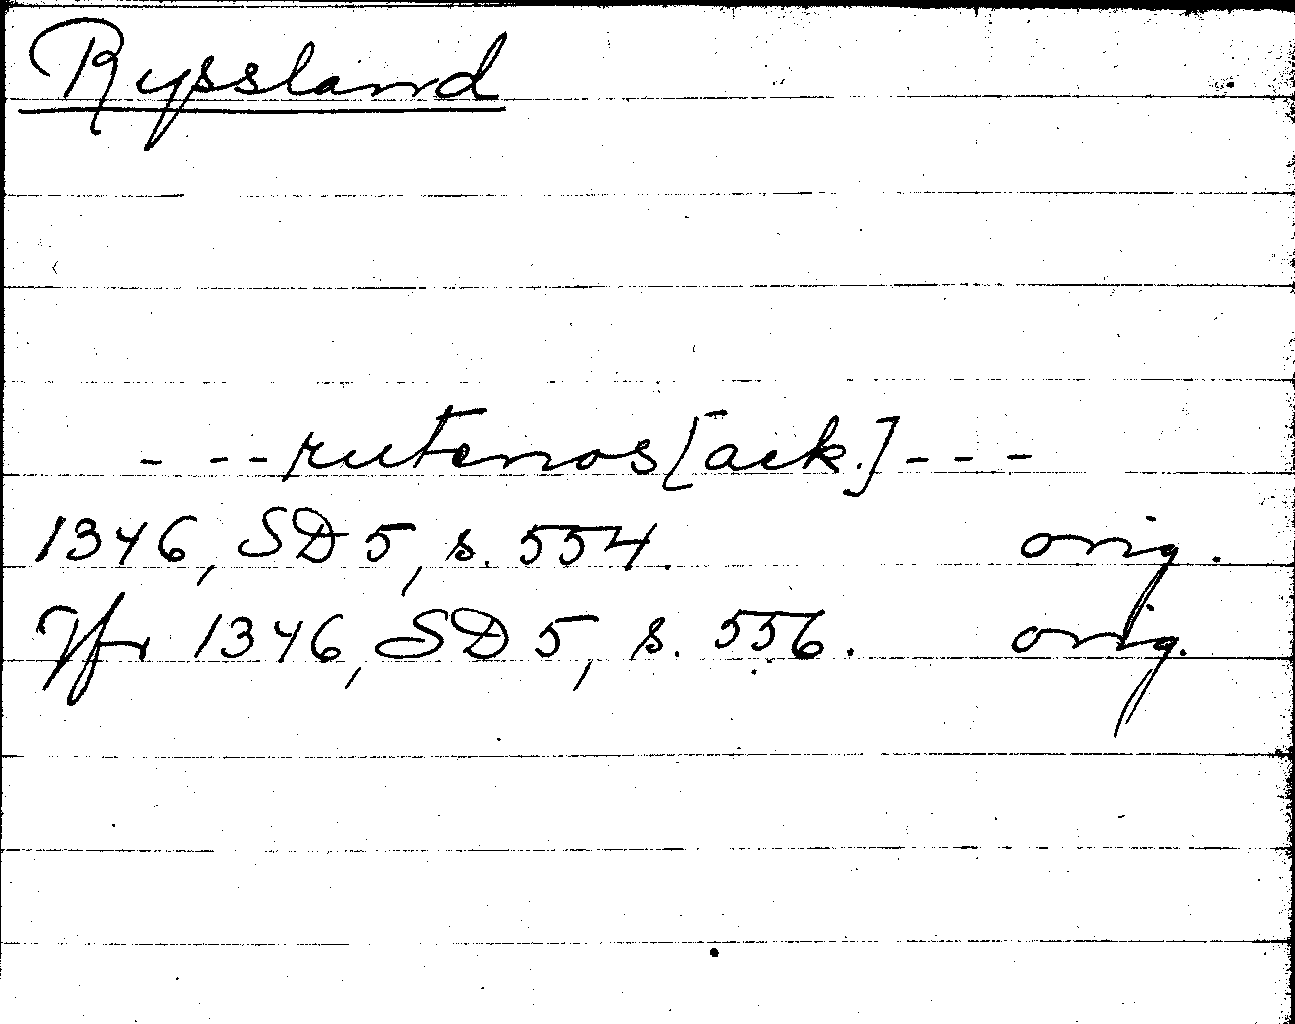 Ryssland
- -- rutenos [ack.] - - -
1346, SD 5, s. 554. orig.
Jfr 1346, SD 5, s. 556. orig.